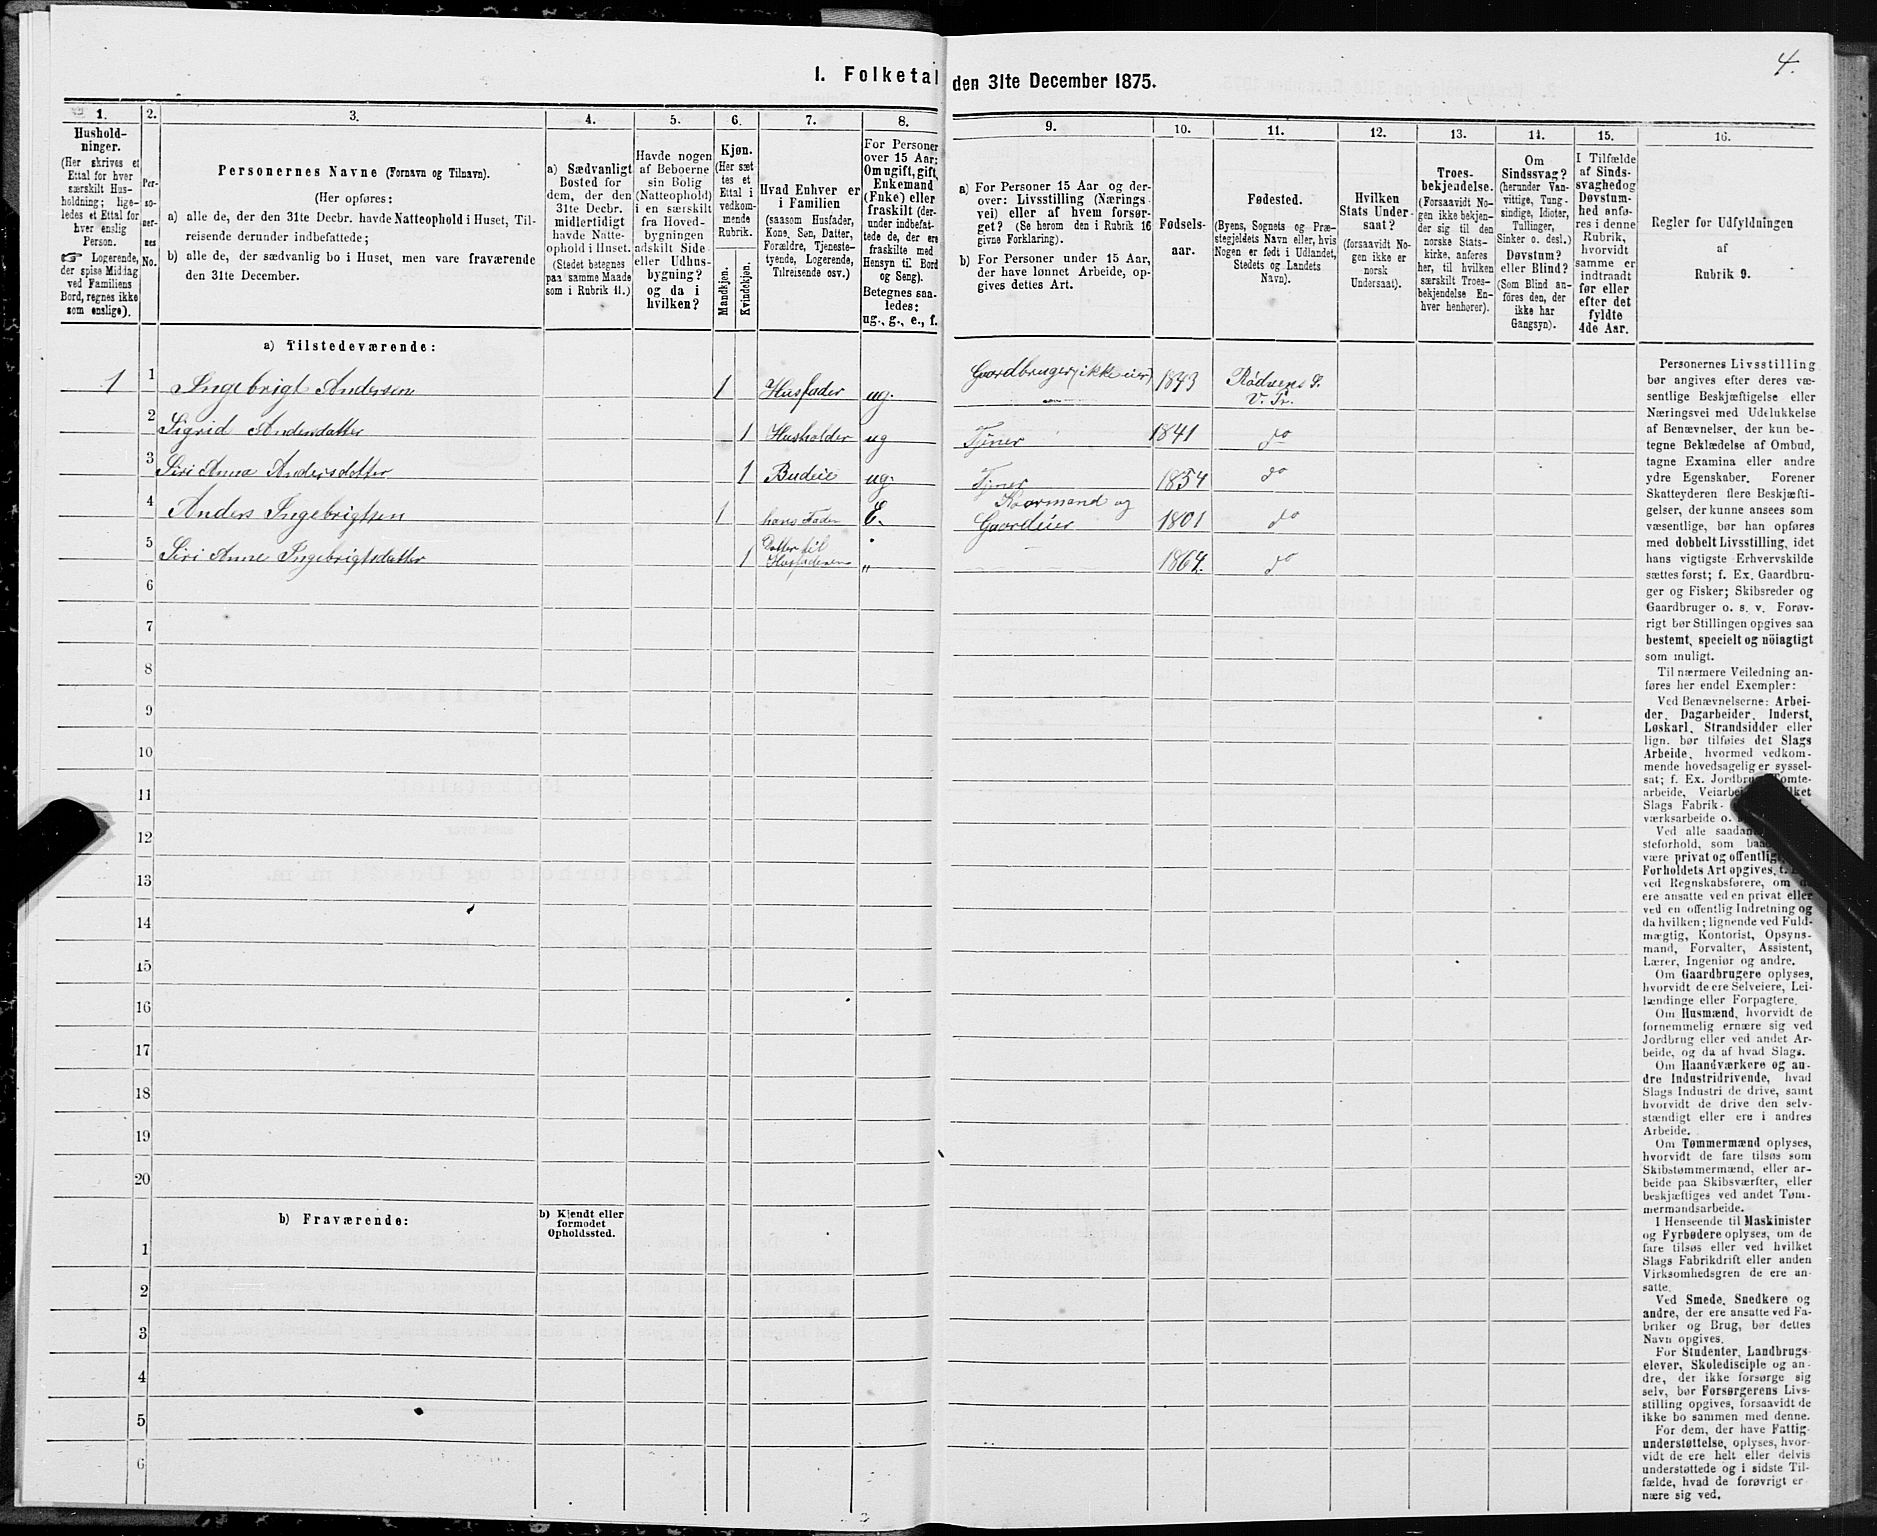 4.
I. Folketal den 31te December 1875.
1.
Hushold-
ninger.
(Her skrives et
Ettal for hver
særskilt Hus-
holdning; lige-
ledes et Ettal for
hver enslig
Person.
☞ Logerende,
der spise Middag
ved Familiens
Bord, regnes ikke
som enslige).
2.
Per-
so-
ner-
nes
No.
3.
Personernes Navne (Fornavn og Tilnavn).
(Her opføres:
a) alle de, der den 31te Decbr. havde Natteophold i Huset, Til-
reisende derunder indbefattede;
b) alle de, der sædvanlig bo i Huset, men vare fraværende
den 31te December.
4.
a) Sædvanligt
Bosted for
dem, der den
31te Decbr.
midlertidigt
havde Natte-
ophold i Huset.
(Stedet betegnes
paa samme Maade
som i Rubrik 11.)
5.
Havde nogen
af Beboerne
sin Bolig
(Natteophold)
i en særskilt
fra Hoved-
bygningen
adskilt Side-
eller Udhus-
bygning?
og da i
hvilken?
6.
Kjøn.
(Her sæt
tes et
Ettal i
vedkom-
mende
Rubrik.
Mandkjøn.
Kvindekjøn.
7.
Hvad Enhver er
i Familien
(saasom Husfader,
Kone, Søn, Datter,
Forældre, Tjeneste-
tyende, Logerende,
Tilreisende osv.)
8.
For Personer
over 15 Aar:
Om ugift, gift,
Enkemand
(Enke) eller
fraskilt (der-
under indbefat-
tede de, der ere
fraskilte med
Hensyn til Bord
og Seng).
Betegnes saa-
ledes:
ug., g., e., f.
9.
a) For Personer 15 Aar og der-
over: Livsstilling (Nærings-
vei) eller af hvem forsør-
get? (Se herom den i Rubrik 16
givne Forklaring).
b) For Personer under 15 Aar,
der have lønnet Arbeide, op-
gives dettes Art.
10.
Fødsels-
aar.
11.
Fødested.
(Byens, Sognets og Præ-
stegjeldets Navn eller, hvis
Nogen er født i Udlandet,
Stedets og Landets
Navn).
12.
Hvilken
Stats Under-
saat?
(forsaavidt No-
gen ikke er
norsk
Undersaat).
13.
Troes-
bekjendelse.
(Forsaavidt No-
gen ikke bekjen-
der sig til den
norske Stats-
kirke, anføres
her, til hvilken
særskilt Troes-
bekjendelse En-
hver henhører).
14.
Om
Sindssvag?
(herunder Van-
vittige, Tung-
sindige, Idioter,
Tullinger,
Sinker o. desl.)
Døvstum?
eller Blind?
(Som Blind an-
føres den, der
ikke har
Gangsyn).
15.
I Tilfælde
af Sinds-
svaghed og
Døvstum-
hed anfø-
res i denne
Rubrik,
hvorvidt
samme er
indtraadt
før eller
efter det
fyldte
4de Aar.
16.
Regler for Udfyldningen
af
Rubrik 9.
a) Tilstedeværende:
1 1 Ingebrigt Andersen 1 Husfader ug. Gaardbruger (ikke eier) 1843 Rødvens S. V. Pr.
2 Sigrid Andersdatter 1 Husholder ug Tjener 1841 do
3 Siri Anna Andersdatter 1 Budeie ug. Tjener 1854 do
4 Anders Ingebrigtsen 1 hans Fader E. Kaarmand og Gaardeier 1801 do
5 Siri Anne Ingebrigtsdatter 1 Datter til Husfaderen „ 1864. do
6
7
8
9
10
11
12
13
14
15
16
17
18
19
20
b) Fraværende:
b) Kjendt eller
formodet
Opholdssted.
1
2
3
4
5
6
Personernes Livsstilling
bør angives efter deres væ-
sentlige Beskjæftigelse eller
Næringsvei med Udelukkelse
af Benævnelser, der kun be-
tegne Beklædelse af Ombud,
tagne Examina eller andre
ydre Egenskaber. Forener
Skatteyderen flere Beskjæfti-
gelser, der kunne ansees som
væsentlige, bør han opføres
med dobbelt Livsstilling, idet
hans vigtigste Erhvervskilde
sættes først; f. Ex. Gaardbru-
ger og Fisker; Skibsreder og
Gaardbruger o. s. v. Forøv-
rigt bør Stillingen opgives saa
bestemt, specielt og nöiagtigt
som muligt.
Til nærmere Veiledning an-
føres her endel Exempler:
Ved Benævnelserne: Arbei-
der, Dagarbeider, Inderst,
Løskarl, Strandsidder eller
lign. bør tilføies det Slags
Arbeide, hvormed vedkom-
mende hovedsagelig er syssel-
sat; f. Ex. Jordbrug, Tomte-
arbeide, Veiarbei
Slags Fabrik-
værksarbeide o.
Ved alle saadan
steforhold, som
være privat og offentlig
Forholdets Art opgives,
ved Regnskabsførere, om
ere ansatte ved en privat eller
ved en offentlig Indretning og
da hvilken; lignende ved Fuld-
mægtig, Kontorist, Opsyns-
mand, Forvalter, Assistent,
Lærer, Ingeniør og andre.
Om Gaardbrugere oplyses,
hvorvidt de ere Selveiere, Lei-
lændinge eller Forpagtere.
Om Husmænd, hvorvidt de
fornemmelig ernære sig ved
Jordbrug eller ved andet Ar-
beide, og da af hvad Slags.
Om Haandværkere og an-
dre Industridrivende, hvad
Slags Industri de drive, samt
hvorvidt de drive den selv-
stændigt eller ere i andres
Arbeide.
Om Tømmermænd oplyses,
hvorvidt de fare tilsøs som
Skibstømmermænd, eller ar-
beide paa Skibsværfter, eller
beskjæftiges ved andet Tøm-
mermandsarbeide.
I Henseende til Maskinister
og Fyrbødere oplyses, om de
fare tilsøs eller ved hvilket
Slags Fabrikdrift eller anden
Virksomhedsgren de ere an-
satte.
Ved Smede, Snedkere og
andre, der ere ansatte ved Fa-
briker og Brug, bør dettes
Navn opgives.
For Studenter, Landbrugs-
elever, Skoledisciple og an-
dre, der ikke forsørge sig
selv, bør Forsørgerens Livs-
stilling opgives, forsaavidt de
ikke bo sammen med denne.
For dem, der have Fattig-
understøttelse, oplyses, hvor-
vidt de ere helt eller delvis
understøttede og i sidste Til-
fælde, hvad de forøvrigt er-
nære sig ved.